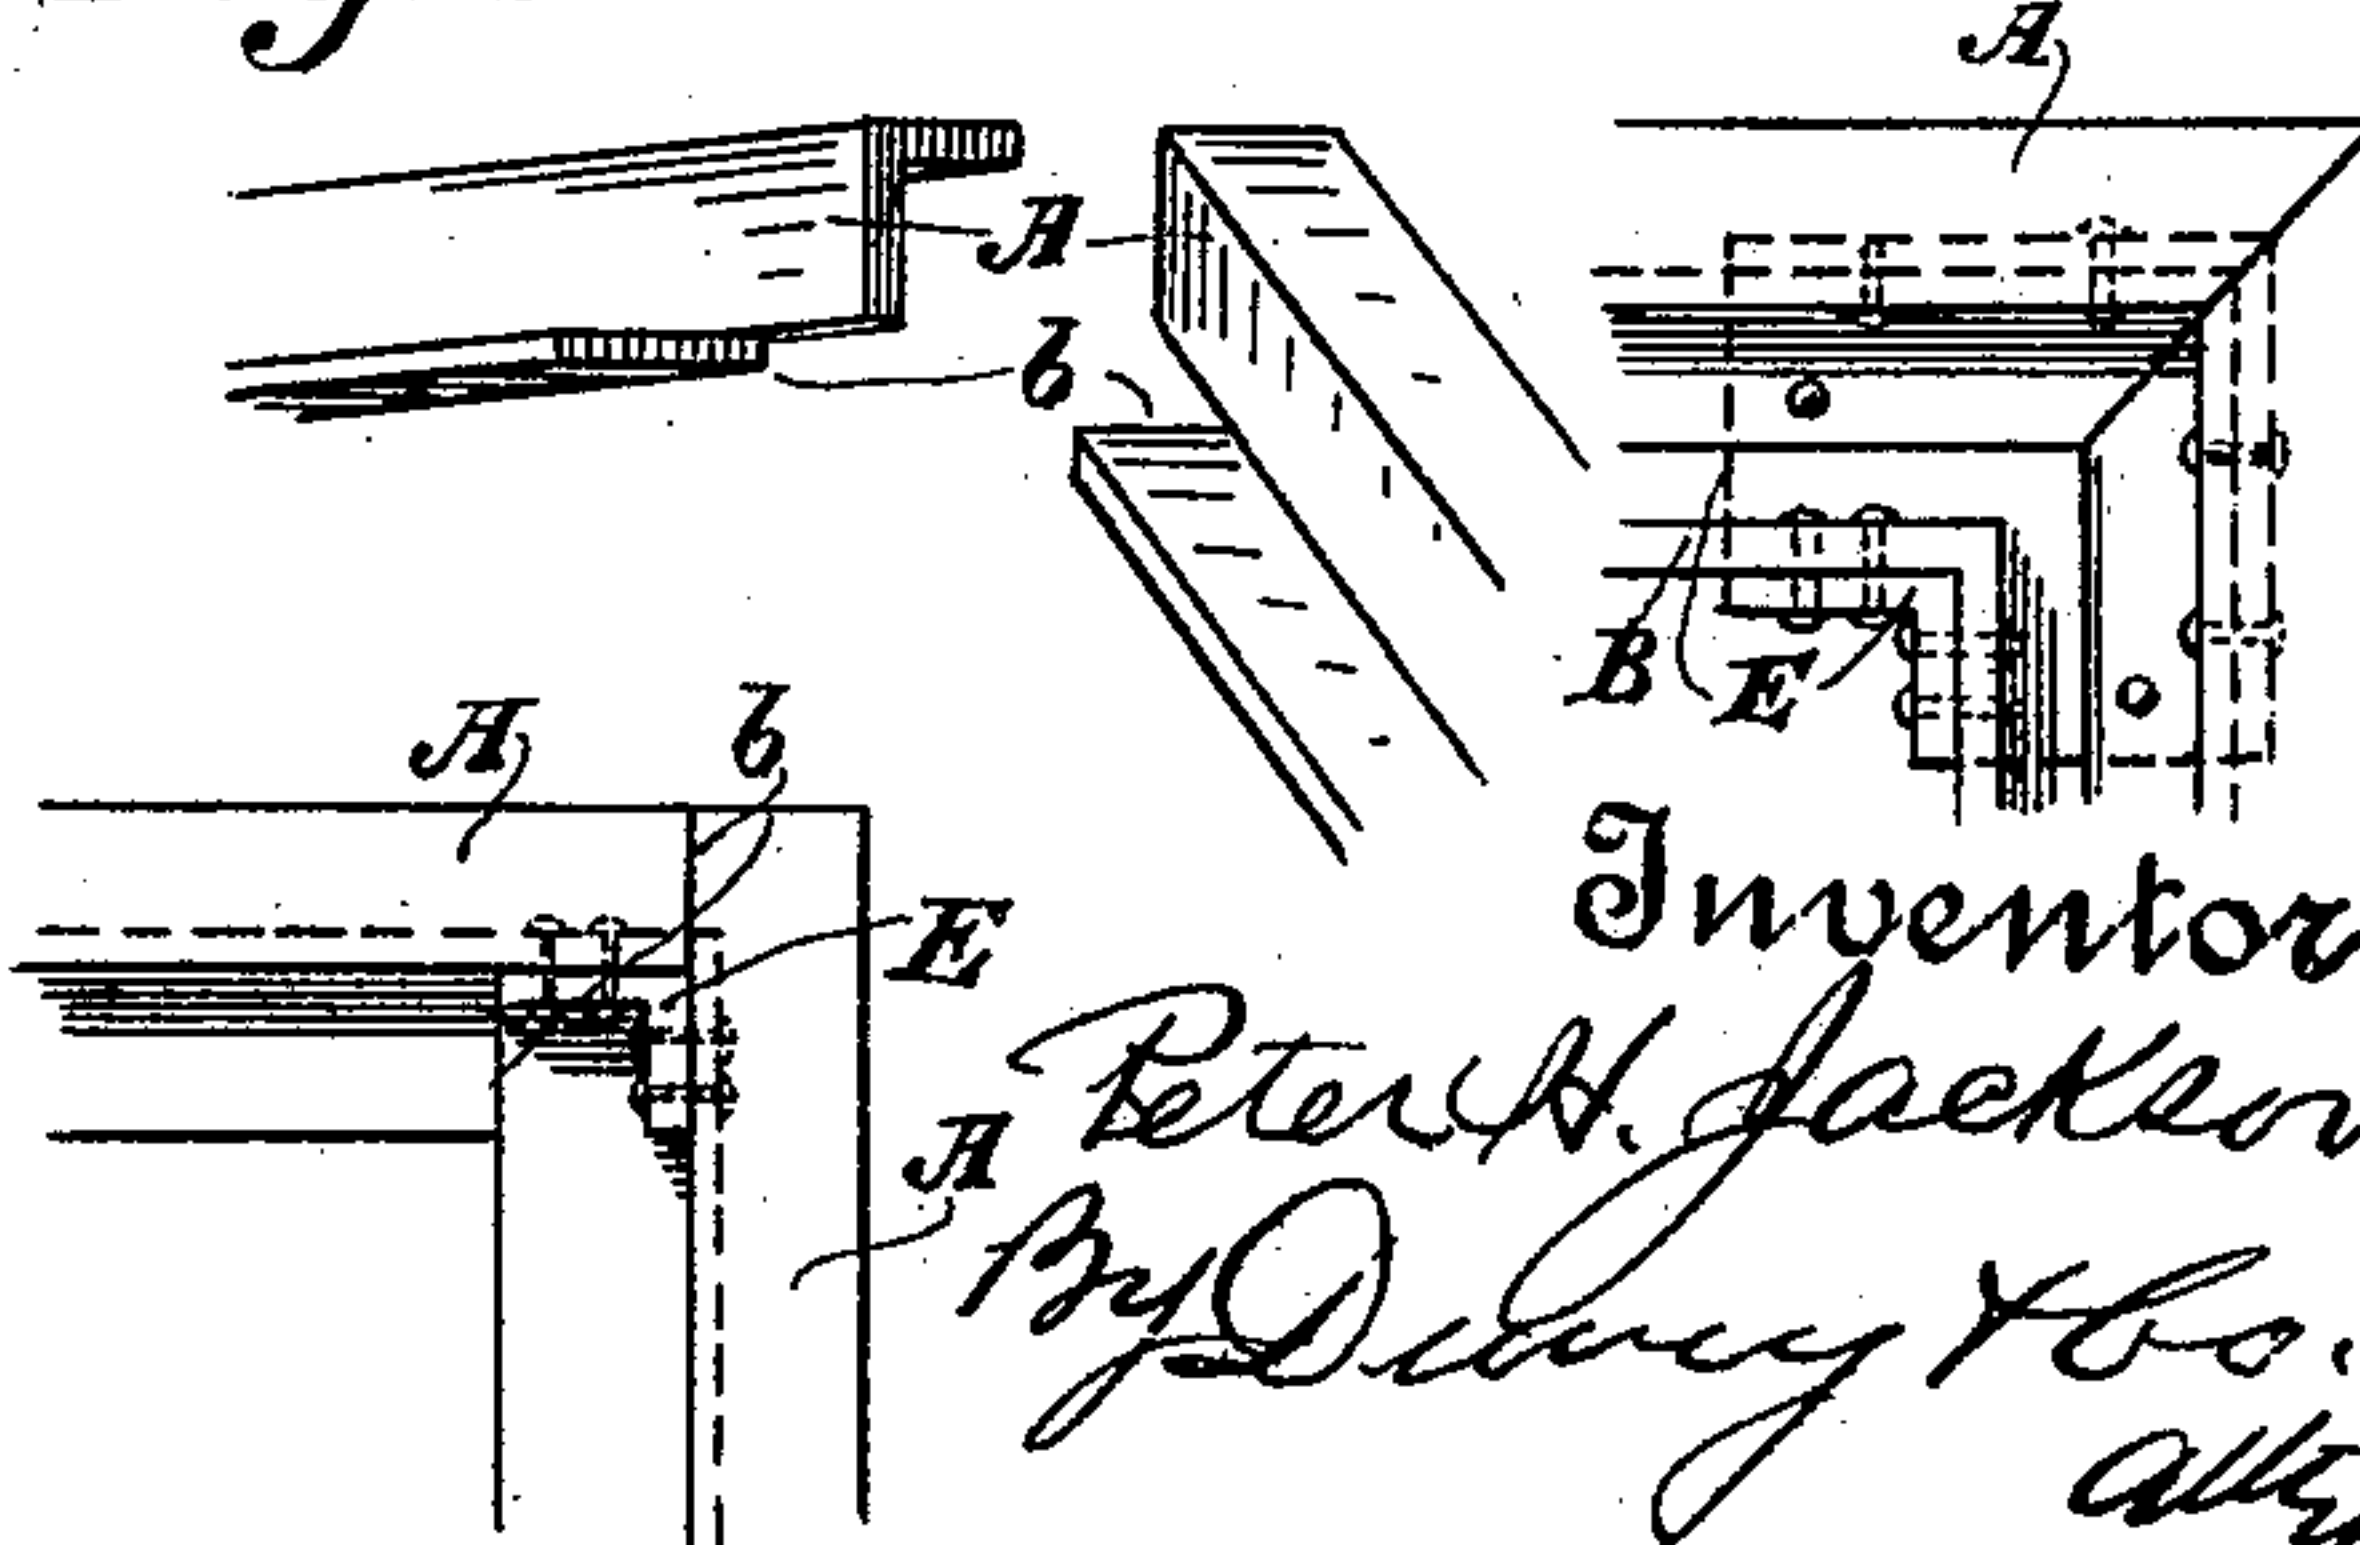 A
A
b
B E
A b
E
Inventor
Peter H. Jackson
A
By Dewey & Co.
Atty